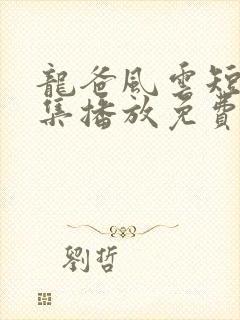 龍爸風雲短
集播放免費
劉哲